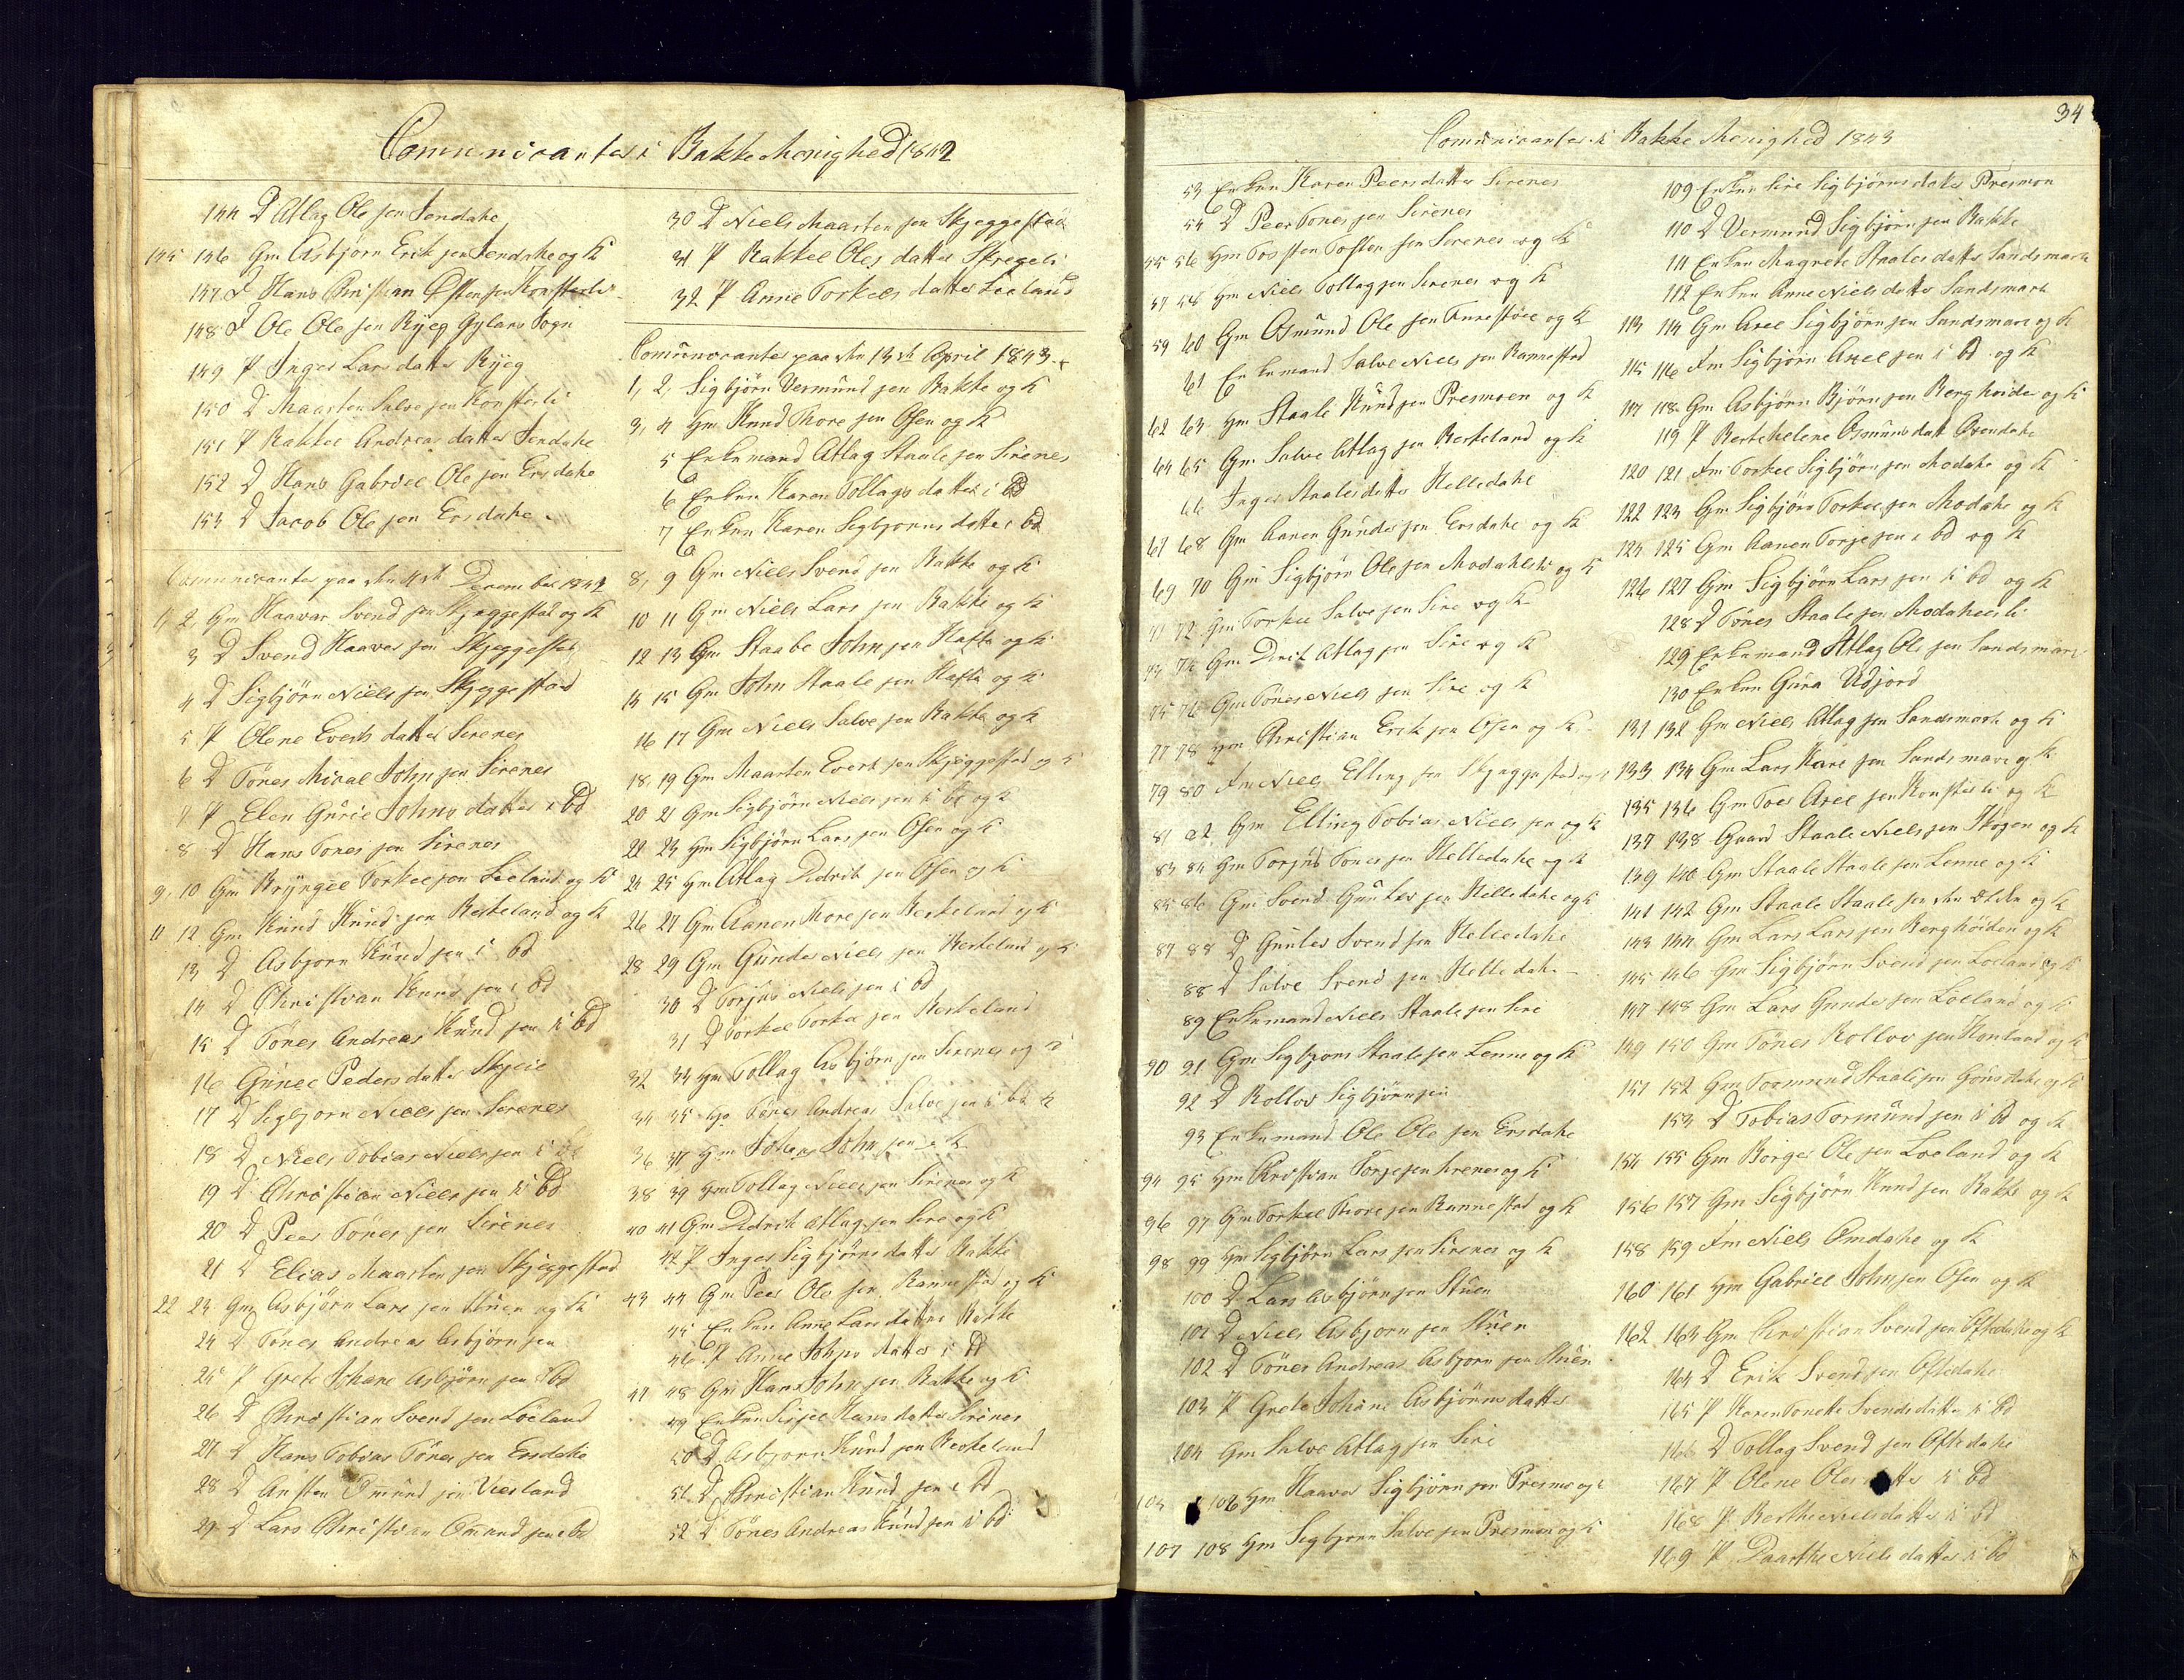 Comunicantes i Bakke Menighed 1842
144 D Atlag Ole sen Jendahe
145 146 Gm Asbjörn Erik sen Jendahe og K
147 D Hans Christian Østen sen
148 D Ole Ole sen Ryeg Gylans Sogn
149 P Inger Lars datter Ryeg
150 D Maarten Salve sen Konsterli
151 P Rakkel Andreas datter Jendahe
152 D Hans Gabriel Ole sen Ersdahe
153 D Jacob Ole sen Ersdahe
Comunicantes paa den 4de December 1842
1, 2, Gm Haavar Svend sen Skjeggestad og K
3 D Svend Haaver sen Skjeggestad
4 D Sigbjörn Niels sen Skjeggestad
5 P Olene Everts datter Sirenes
6 D Tönes Mical John sen Sirenes
7 P Elen Gurie Johns datter i bd
8 D Hans Tones sen Sirenes
9, 10 Gm Bryngel Torkel sen Loeland og K
11 12 Gm Knud Knud sen Reskeland og K
13 D Asbjorn Knud sen i bd
14 D Christian Knud sen i bd
15 D Tönes Andreas Knud sen i bd
16 Gunel Peders datter Skjeie
17 D Sigbjorn Niels sen Serenes
18 D Niels Tobias Niels sen i bd
19 D Christian Niels sen i bd
20 D Peer Tönes sen Sirenes
21 D Elias Maarten sen Skjeggestad
22 23 Gm Asbjörn Lars sen Stuen og K
24 D Tones Andreas Asbjörn sen
25 P Grete Johane Asbjörn sen i bd
26 D Christian Svend sen Loeland
27 D Hans Tobias Tönes sen Ersdahe
28 D Austen Omund sen Viersland
29 D Lars Christian Omund sen i bd
30 D Niels Maarten sen Skjeggestad
31 P Rakkel Oles datter Skregeli
32 P Anne Torkels datter Loeland
Comunicantes paa den 13de April 1843
1, 2, Sigbjörn Vermund sen Bakke og K
3, 4 Hm Knud Thore sen Osen og K
5 Enkemand Atlag Staale sen Sirenes
6 Enken Karen Tollags datter i bd
7 Enken Karen Sigbjorns datter i bd
8, 9 Gm Niels Svend sen Bakke og K
10 11 Gm Niels Lars sen Bakke og K
12 13 Gm Staale John sen Hafte og K
14 15 Gm John Staale sen Hafte og K
16 17 Gm Niels Salve sen Bakke og K
18, 19 Gm Maarten Evert sen Skjeggestad og K
20 21 Gm Sigbjörn Niels sen i bd og K
22 23 Hm Sigbjörn Lars sen Osen og K
24 25 Hm Atlag Didrik sen Osen og K
26 27 Gm Aanen Thore sen Reskeland og K
28 29 Gm Gunder Niels sen Reskeland og K
30 D Torjus Niels sen i bd
31 D Torkel Torkel sen Reskeland
32 33 Hm Tollag Asbjörn sen Serenes og K
34 35 Hm Tönes Andreas Salve sen i bd K
36 37 Hm Johan John sen i K
38 39 Hm Tollag Niels sen Sirenes og K
40 41 Gm Didrik Atlag sen Sire og K
42 P Inger Sigbjörns datter Bakke
43 44 Gm Peer Ole sen Rannestad og K
45 Enken Anne Lars datter Bakke
46 P Anne Johns datter i bd
47 48 Gm Hans John sen Bakke og K
49 Enken Sirjel Hans datter Sirenes
50 D Asbjorn Knud sen Reskeland
51 D Christian Knud sen i bd
52 D Tönes Andreas Knud sen i bd
34
Comunicantes i Bakke Menighed 1843
53 Enken Karen Peers datter Sirenes
54 D Peer Tones sen Sirenes
55 56 Hm Tosten Tosten sen Sirenes og K
57 58 Hm Niels Tollag sen Sirenes og K
59 60 Gm Osmund Ole sen og K
61 Enkemand Salve Niels sen Rannestad
62 63 Hm Staale Knud sen Presmoen og K
64 65 Gm Salve Atlag sen Reskeland og K
66 Inger Staales datter Helledahe
67 68 Gm Aanen Gunder sen Ersdahe og K
69 70 Gm Sigbjörn Ole sen Modahlsli og K
71 72 Gm Torkel Salve sen Sire og K
73 74 Gm Didrik Atlag sen Sire og K
75 76 Gm Tönes Niels sen Sire og K
77 78 Hm Christian Erik sen Osen og K
79 80 Fm Niels Elling sen Skjeggestad og K
81 82 Gm Elling Tobias Niels sen og K
83 84 Gm Torjus Tones sen Helledahe og K
85 86 Gm Svend Gunter sen Helledahe og K
87 88 D Gunles Svend sen Helledahe
88 D Salve Svend sen Helledahe
89 Enkemand Niels Staale sen Sire
90 91 Gm Sigbjorn Staale sen Lenne og K
92 D Rollov Sigbjörnsen
93 Enkemand Ole Ole sen Ersdahe
94 95 Hm Christian Torje sen Sirenes og K
96 97 Gm Torkel Thore sen Rannestad og K
98 99 Hm Sigbjörn Lars sen Sirenes og K
100 D Lars Asbjörn sen Stuen
101 D Niels Asbjorn sen Stuen
102 D Tönes Andreas Asbjorn sen Stuen
103 P Grete Johane Asbjörns datter
104 Gm Salve Atlag sen Sire
105 106 Hm Haaver Sigbjörn sen Presmo og K
107 108 Hm Sigbjorn Salve sen Presmoen og K
109 Enken Sire Sigbjörns datter Presmon
110 D Vermund Sigbjörn sen Bakke
111 Enken Magrete Staales datter Sandsmark
112 Enken Anne Niels datter Sandsmark
113 114 Gm Axel Sigbjörn sen Sandsmark og K
115 116 Fm Sigbjörn Axel sen i bd og K
117 118 Gm Asbjörn Björn sen Berghöiden og K
119 P Bertehelene Osmuns datt Ovendahe
120 121 Fm Torkel Sigbjörn sen Modahe og K
122 123 Gm Sigbjörn Torkel sen Modahe og K
124 125 Gm Aanen Torje sen i bd og K
126 127 Gm Sigbjörn Lars sen i bd og K
128 D Tönes Staale sen Modahelsli
129 Enkemand Atlag Ole sen Sandsmark
130 Enken Gura Udjord
131 132 Gm Niels Atlag sen Sandsmark og K
133 134 Gm Lars Kare sen Sandsmark og K
135 136 Gm Toer Axel sen Konsterli og K
137 138 Gaard Staale Niels sen Skogen og K
139 140 Gm Staale Staale sen Lenne og K
141 142 Gm Staale Staale sen den ældre og K
143 144 Gm Lars Lars sen Berghöiden og K
145 146 Gm Sigbjörn Svend sen Loeland og K
147 148 Gm Lars Gunder sen Loeland og K
149 150 Gm Tönes Rollov sen og K
151 152 Gm Tormund Staale sen og K
153 D Tobias Tormund sen i bd og K
154 155 Gm Börger Ole sen Loeland og K
156 157 Gm Sigbjörn Knud sen Bakke og K
158 159 Fm Niels Omdahe og K
160 161 Hm Gabriel John sen Osen og K
162 163 Gm Christian Svend sen Oftedahe og K
164 D Erik Svend sen Oftedahe
165 P Karen Tonette Svends datter i bd
166 D Tollag Svend sen Oftedahe
167 P Olene Oles datter i bd
168 P Berthe Niels datter i bd
169 P Daarthe Niels datter i bd